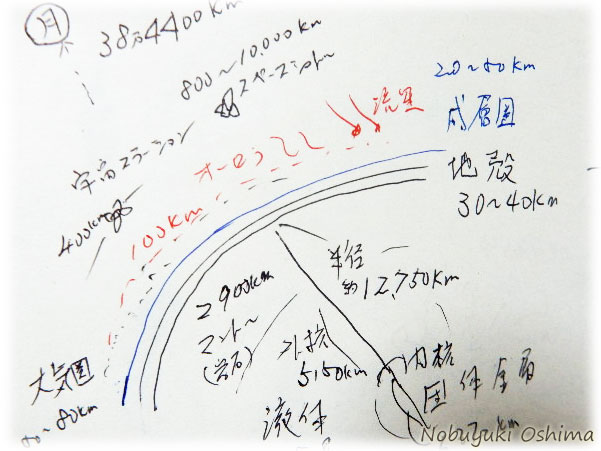 月
38万4400Km
800〜10,000Km
スペースシャトル
宇宙ステーション
400km
オーロラ
流星
100Km
20〜50Km
成層圏
地殻
30〜40Km
半径
約12,750Km
2900Km
マントル
(岩石)
外核
5150Km
液体
内核
固体金属
大気圏
〜80Km
Nobuyuki Oshima